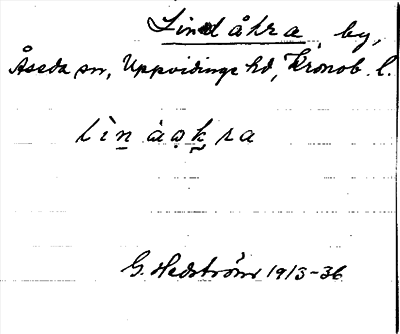 Lindåkra, by,
Åseda sn, Uppvidinge hd, Kronob. l.
lìn àǫkra
G. Hedström 1913-36